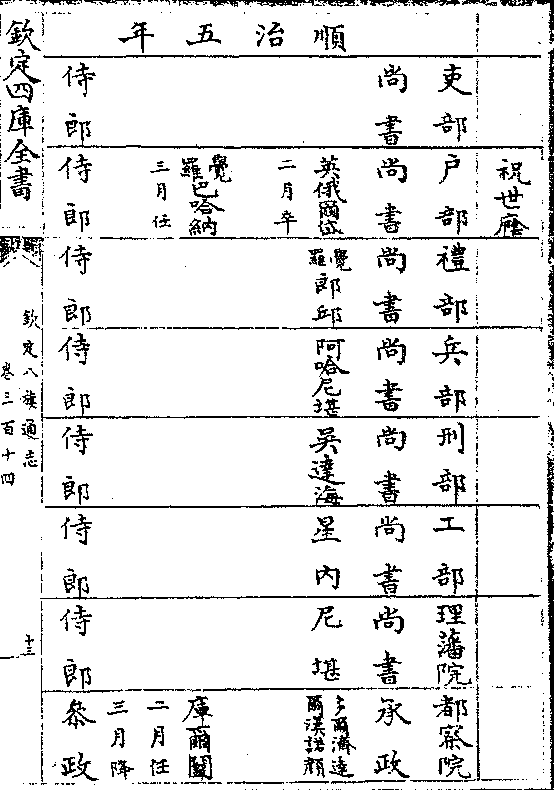 祝世廕
順治五年
吏部
尚書
侍郎
戶部
尚書
英俄爾岱
二月卒
覺羅巴哈納
三月任
侍郎
禮部
尚書
覺羅郎邱
侍郎
兵部
尚書
阿哈尼堪
侍郎
刑部
尚書
吳達海
侍郎
工部
尚書
星內
侍郎
理藩院
尚書
尼堪
侍郎
都察院
承政
多爾濟達爾漢諾顏
庫爾闡
二月任
三月降
叅政
欽定四庫全書
欽定八旗通志
卷三百十四
十三